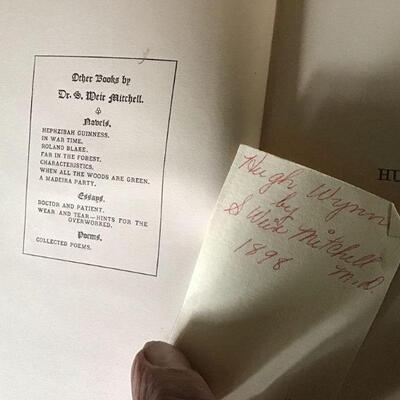 Other Books by
Dr. S. Weir Mitchell.
Novels.
HEPHZIBAH GUINNESS.
IN WAR TIME.
ROLAND BLAKE.
FAR IN THE FOREST.
CHARACTERISTICS.
WHEN ALL THE WOODS ARE GREEN.
A MADEIRA PARTY.
Essays.
DOCTOR AND PATIENT.
WEAR AND TEAR—HINTS FOR THE
OVERWORKED.
Poems.
COLLECTED POEMS.
HU
Hugh Wynn
by
S Weir Mitchell
M.D.
1898